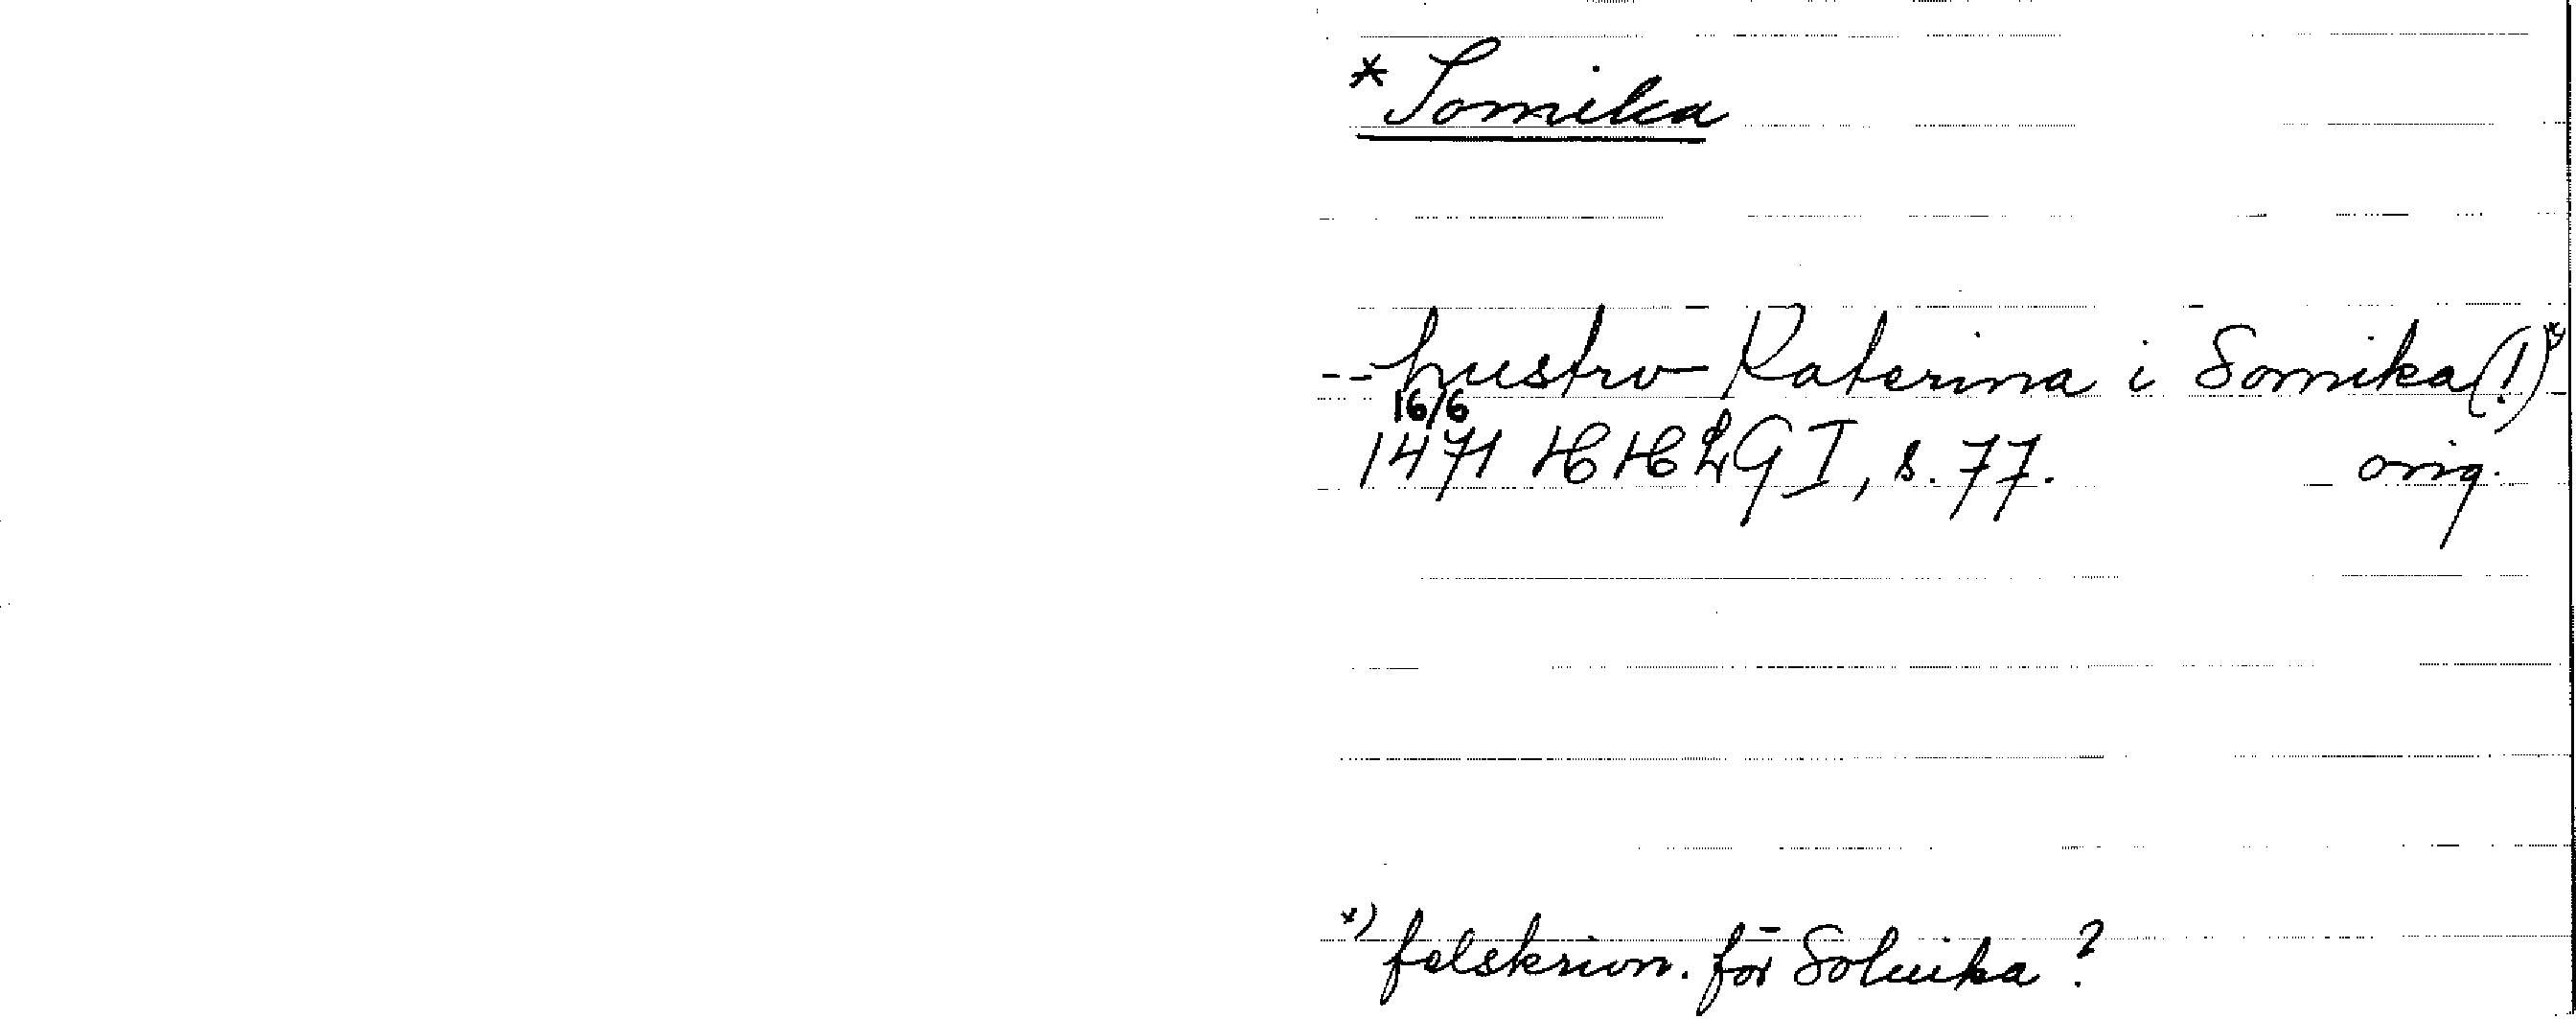 * Somika
-- hustro Katerina i Somika (!)*)
16/6
1471 HHLG I, s. 77. orig.
*) felskrivn. för Solmika?